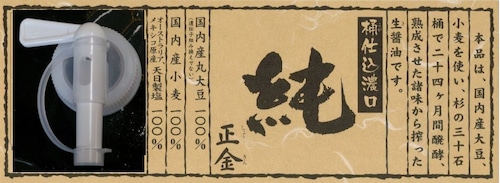 本品は、国内産大豆、
小麦を使い、杉の三十石
桶で二十四ヶ月間醗酵、
熟成させた諸味から搾った
生醤油です。
桶仕込濃口
純
正金
国内産丸大豆 一〇〇%
(遺伝子組み換えでない)
国内産小麦 一〇〇%
オーストラリア、
メキシコ原産 天日製塩 一〇〇%